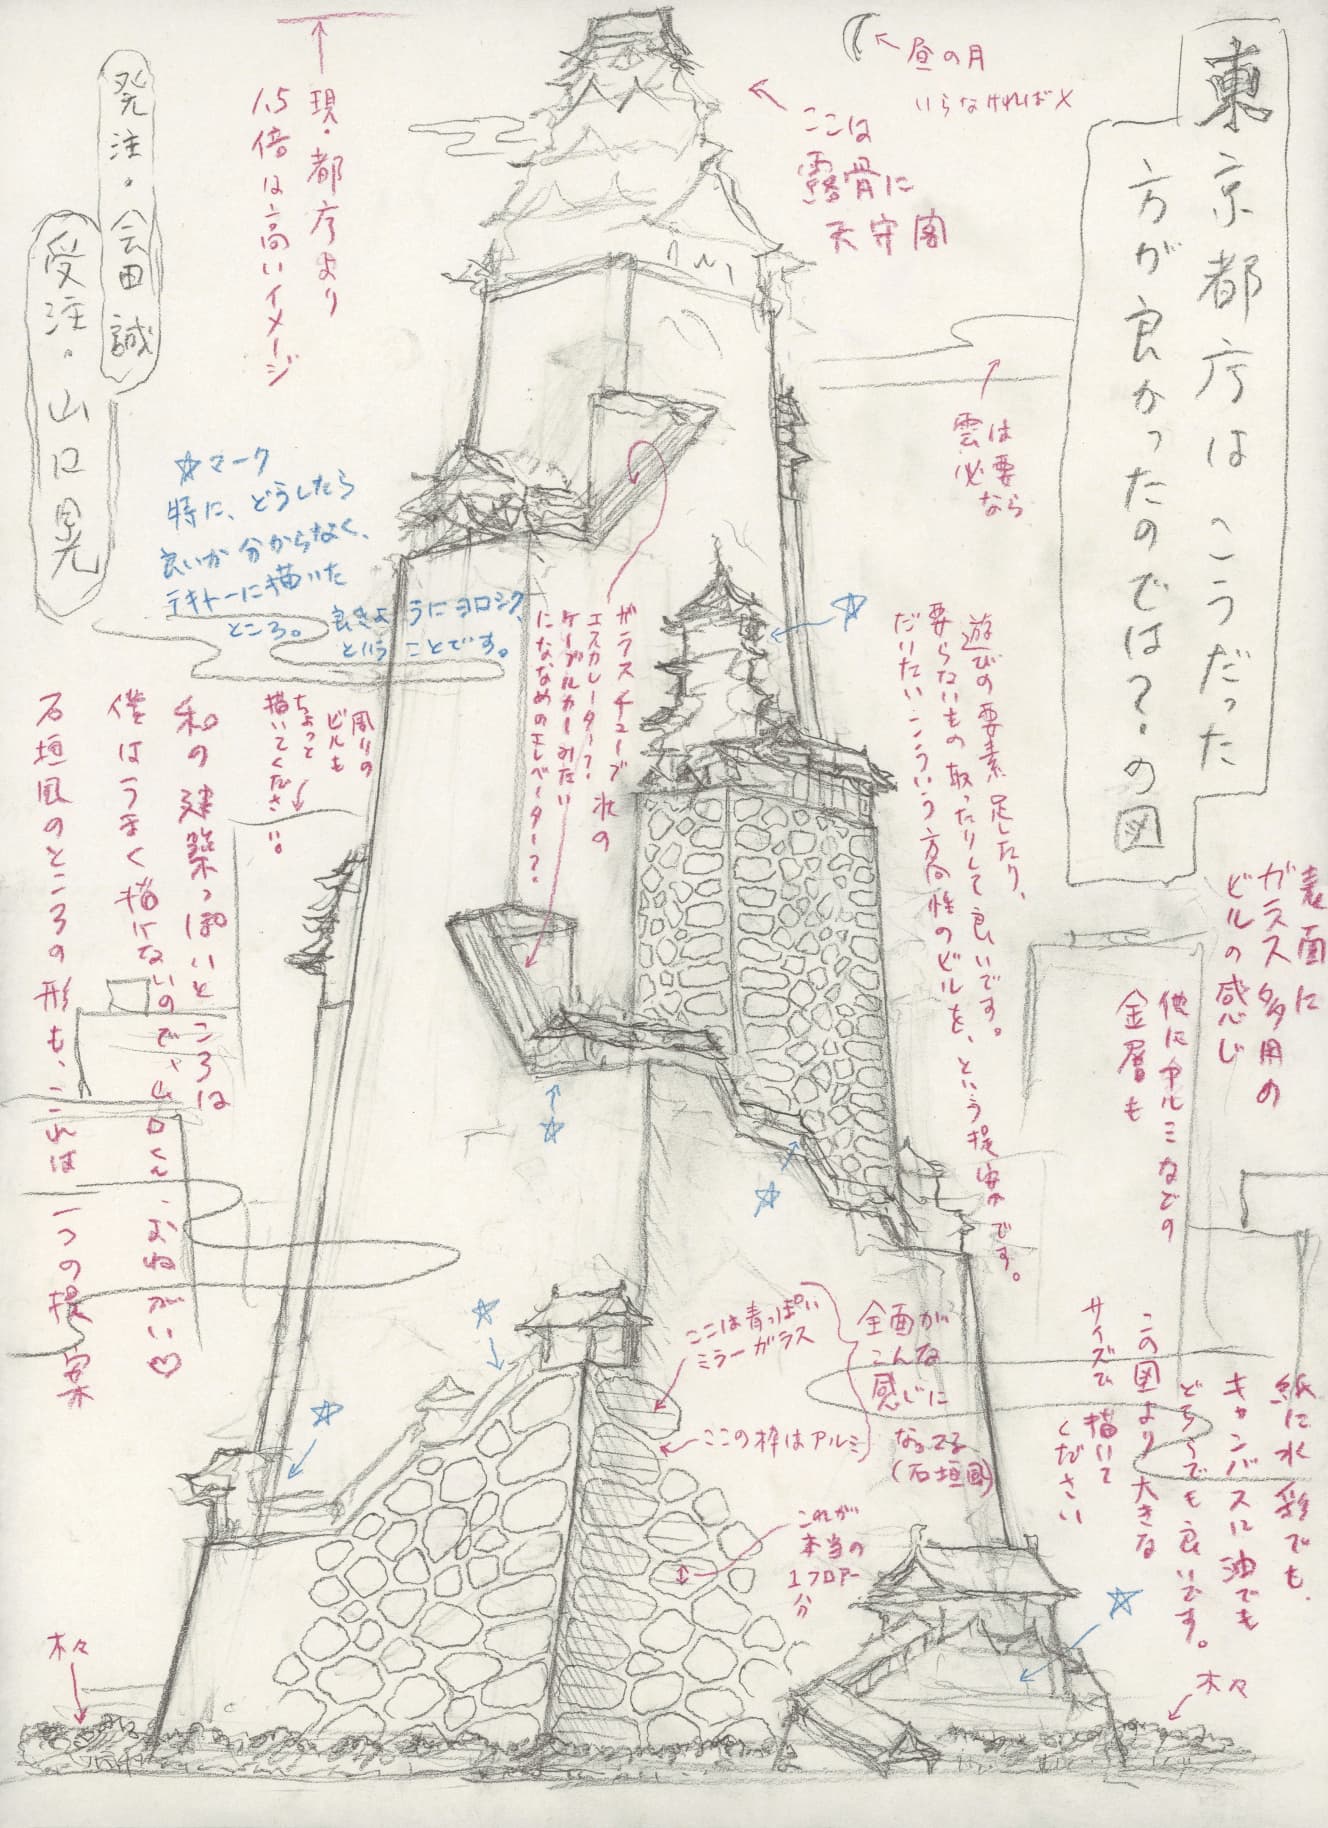 東京都庁はこうだった
方が良かったのでは?の図
昼の月
いらなければ×
ここは
露骨に
天守閣
雲は
必要
なら
現・都庁より
1.5倍は高いイメージ
発注・会田誠
受注・山口晃
☆マーク
特に、どうしたら
良いか分からなく、
テキトーに描いた
ところ。良きようにヨロシク、
ということです。
ガラスチューブ状の
エスカレーター?
ケーブルカーみたい
にななめのエレベーター?
遊びの要素足したり、
要らないもの取ったりして良いです。
だいたいこういう方向性のビルを、という提案です。
周りの
ビルも
ちょっと
描いてください。
和の建築っぽいところは
僕はうまく描けないので、山口くん、おねがい♡
石垣風のところの形も、これは一つの提案
表面に
ガラス多用の
ビルの感じ
他にアルミなどの
金属も
ここは青っぽい
ミラーガラス
ここの枠はアルミ
全面が
こんな
感じに
なってる
(石垣風)
これが
本当の
1フロアー
分
紙に水彩でも、
キャンバスに油でも
どちらでも良いです。
この図より大きな
サイズで描いて
ください
木々
木々